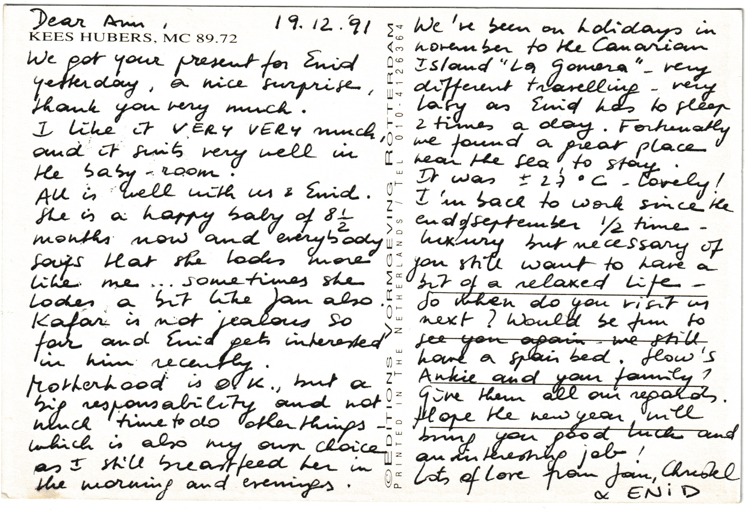 Dear Ann, 19.12.'91
KEES HUBERS, MC 89.72
We got your present for Enid
yesterday, a nice surprise,
thank you very much.
I like it VERY VERY much
and it suits very well in
the baby-room.
All is well with us & Enid.
She is a happy baby of 8½
months now and everybody
says that she lookes more
like me ... sometimes she
lookes a bit like Jan also.
Kafar is not jealous so
far and Enid gets interested
in him recently.
Motherhood is O.K., but a
big responsability and not
much time to do other things -
which is also my own choice
as I still breastfeed her in
the morning and evenings.
©EDITIONS VORMGEVING ROTTERDAM
PRINTED IN THE NETHERLANDS / TEL 010-4126364
We've been on holidays in
november to the Canarian
Island "La Gomera" - very
different travelling - very
lazy as Enid has to sleep
2 times a day. Fortunately
we found a great place
near the sea, to stay.
It was ± 27 °C - Lovely!
I'm back to work since the
end of september 1/2 time -
luxury but necessary if
you still want to have a
bit of a relaxed life -
So when do you visit us
next? Would be fun to
see you again - we still
have a spair bed. How's
Ankie and your family?
Give them all our regards.
Hope the new year will
bring you good luck and
an interesting job!
Lots of love from Jan, Christel
& ENiD